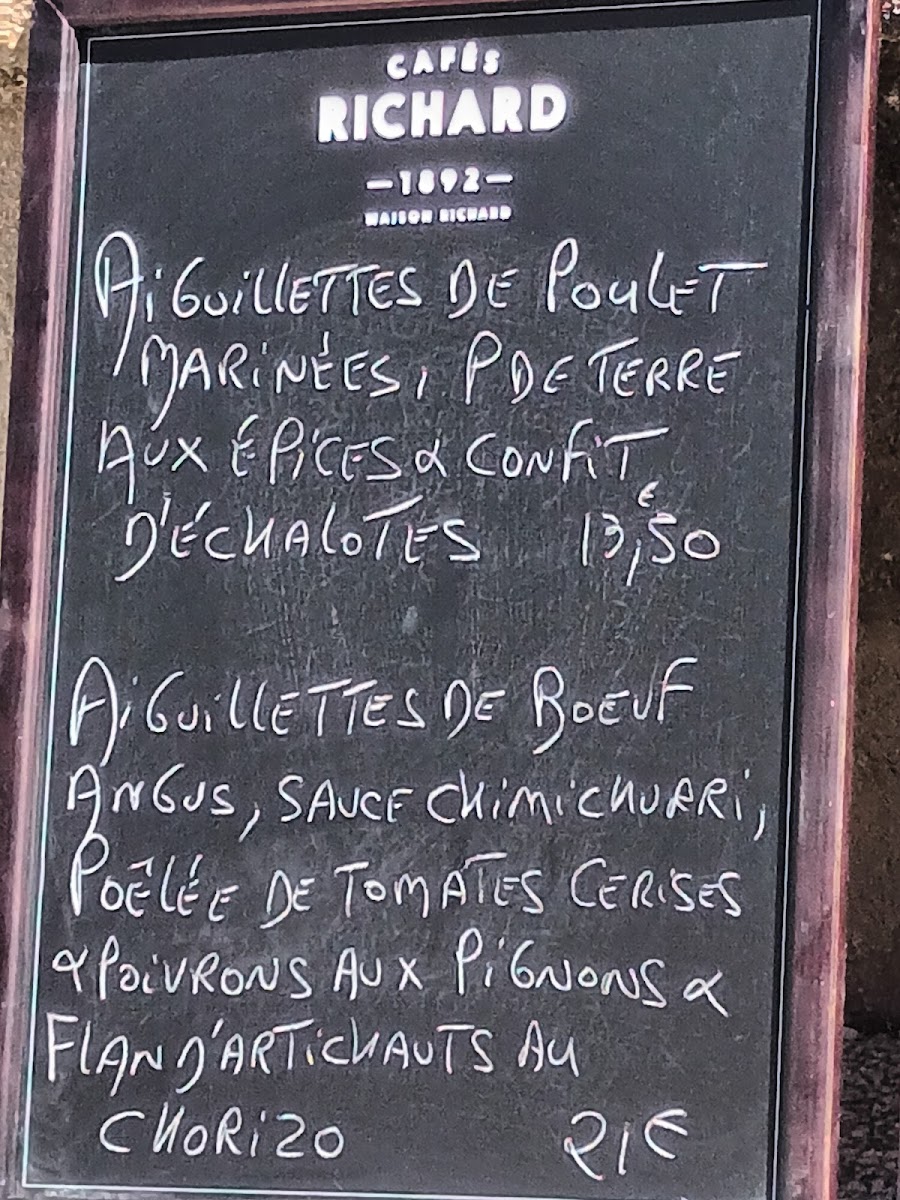 CAFÉS
RICHARD
—1892—
MAISON RICHARD
AIGUILLETTES DE POULET
MARINÉES, P DE TERRE
AUX ÉPICES & CONFIT
D'ÉCHALOTES 13,€50
AIGUILLETTES DE BOEUF
ANGUS, SAUCE CHIMICHURRI,
POÊLÉE DE TOMATES CERISES
& POIVRONS AUX PIGNONS &
FLAN D'ARTICHAUTS AU
CHORIZO 21€